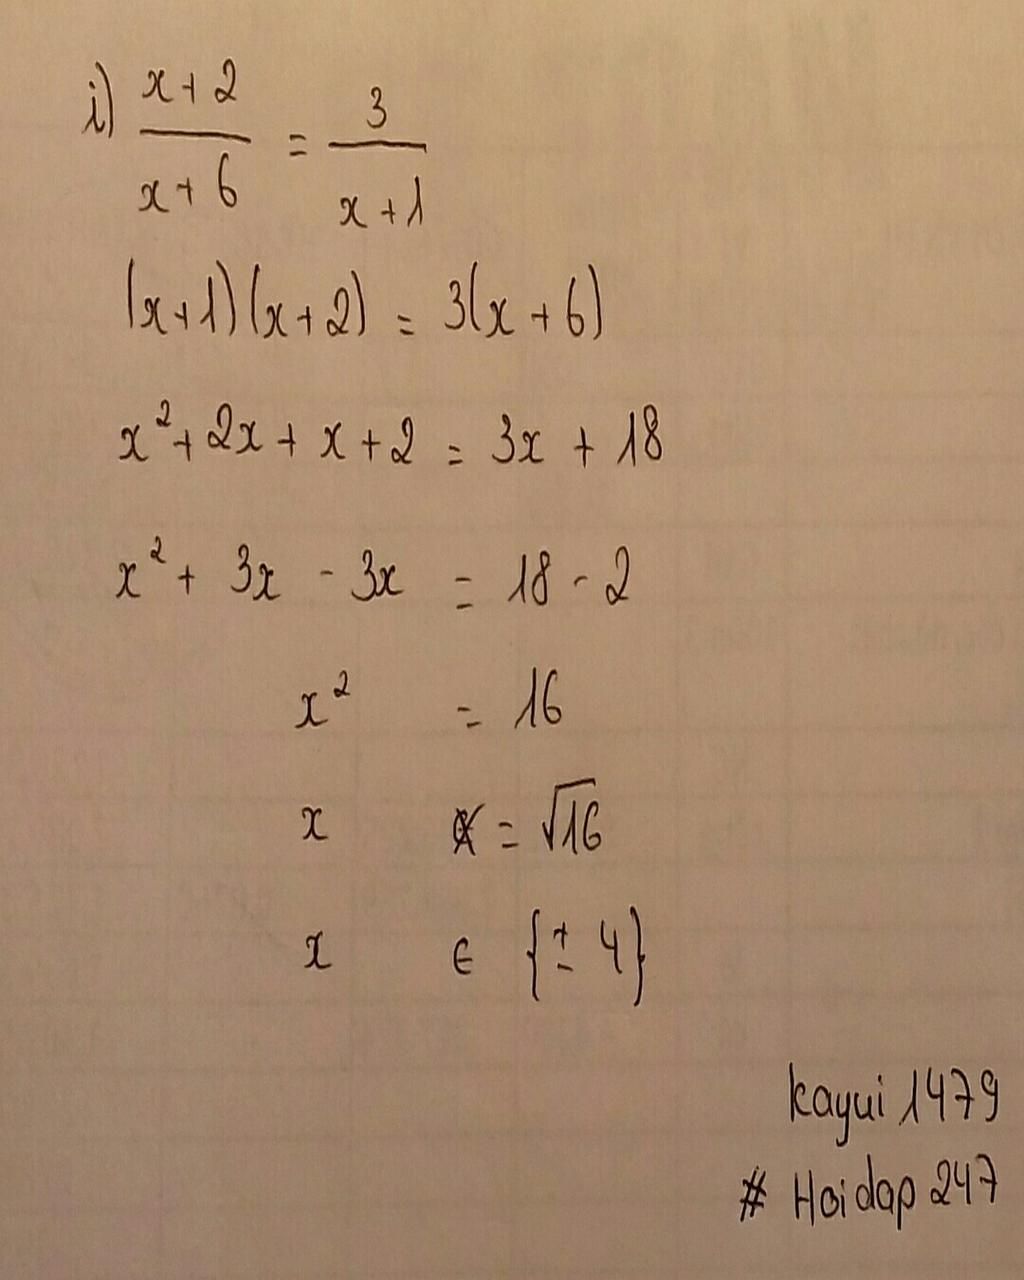 i) x+2/x+6 = 3/x+1
(x+1)(x+2) = 3(x+6)
x²+2x+x+2 = 3x+18
x²+3x-3x = 18-2
x² = 16
x = √16
x ∈ {± 4}
kayui 1479
# Hoidap 247